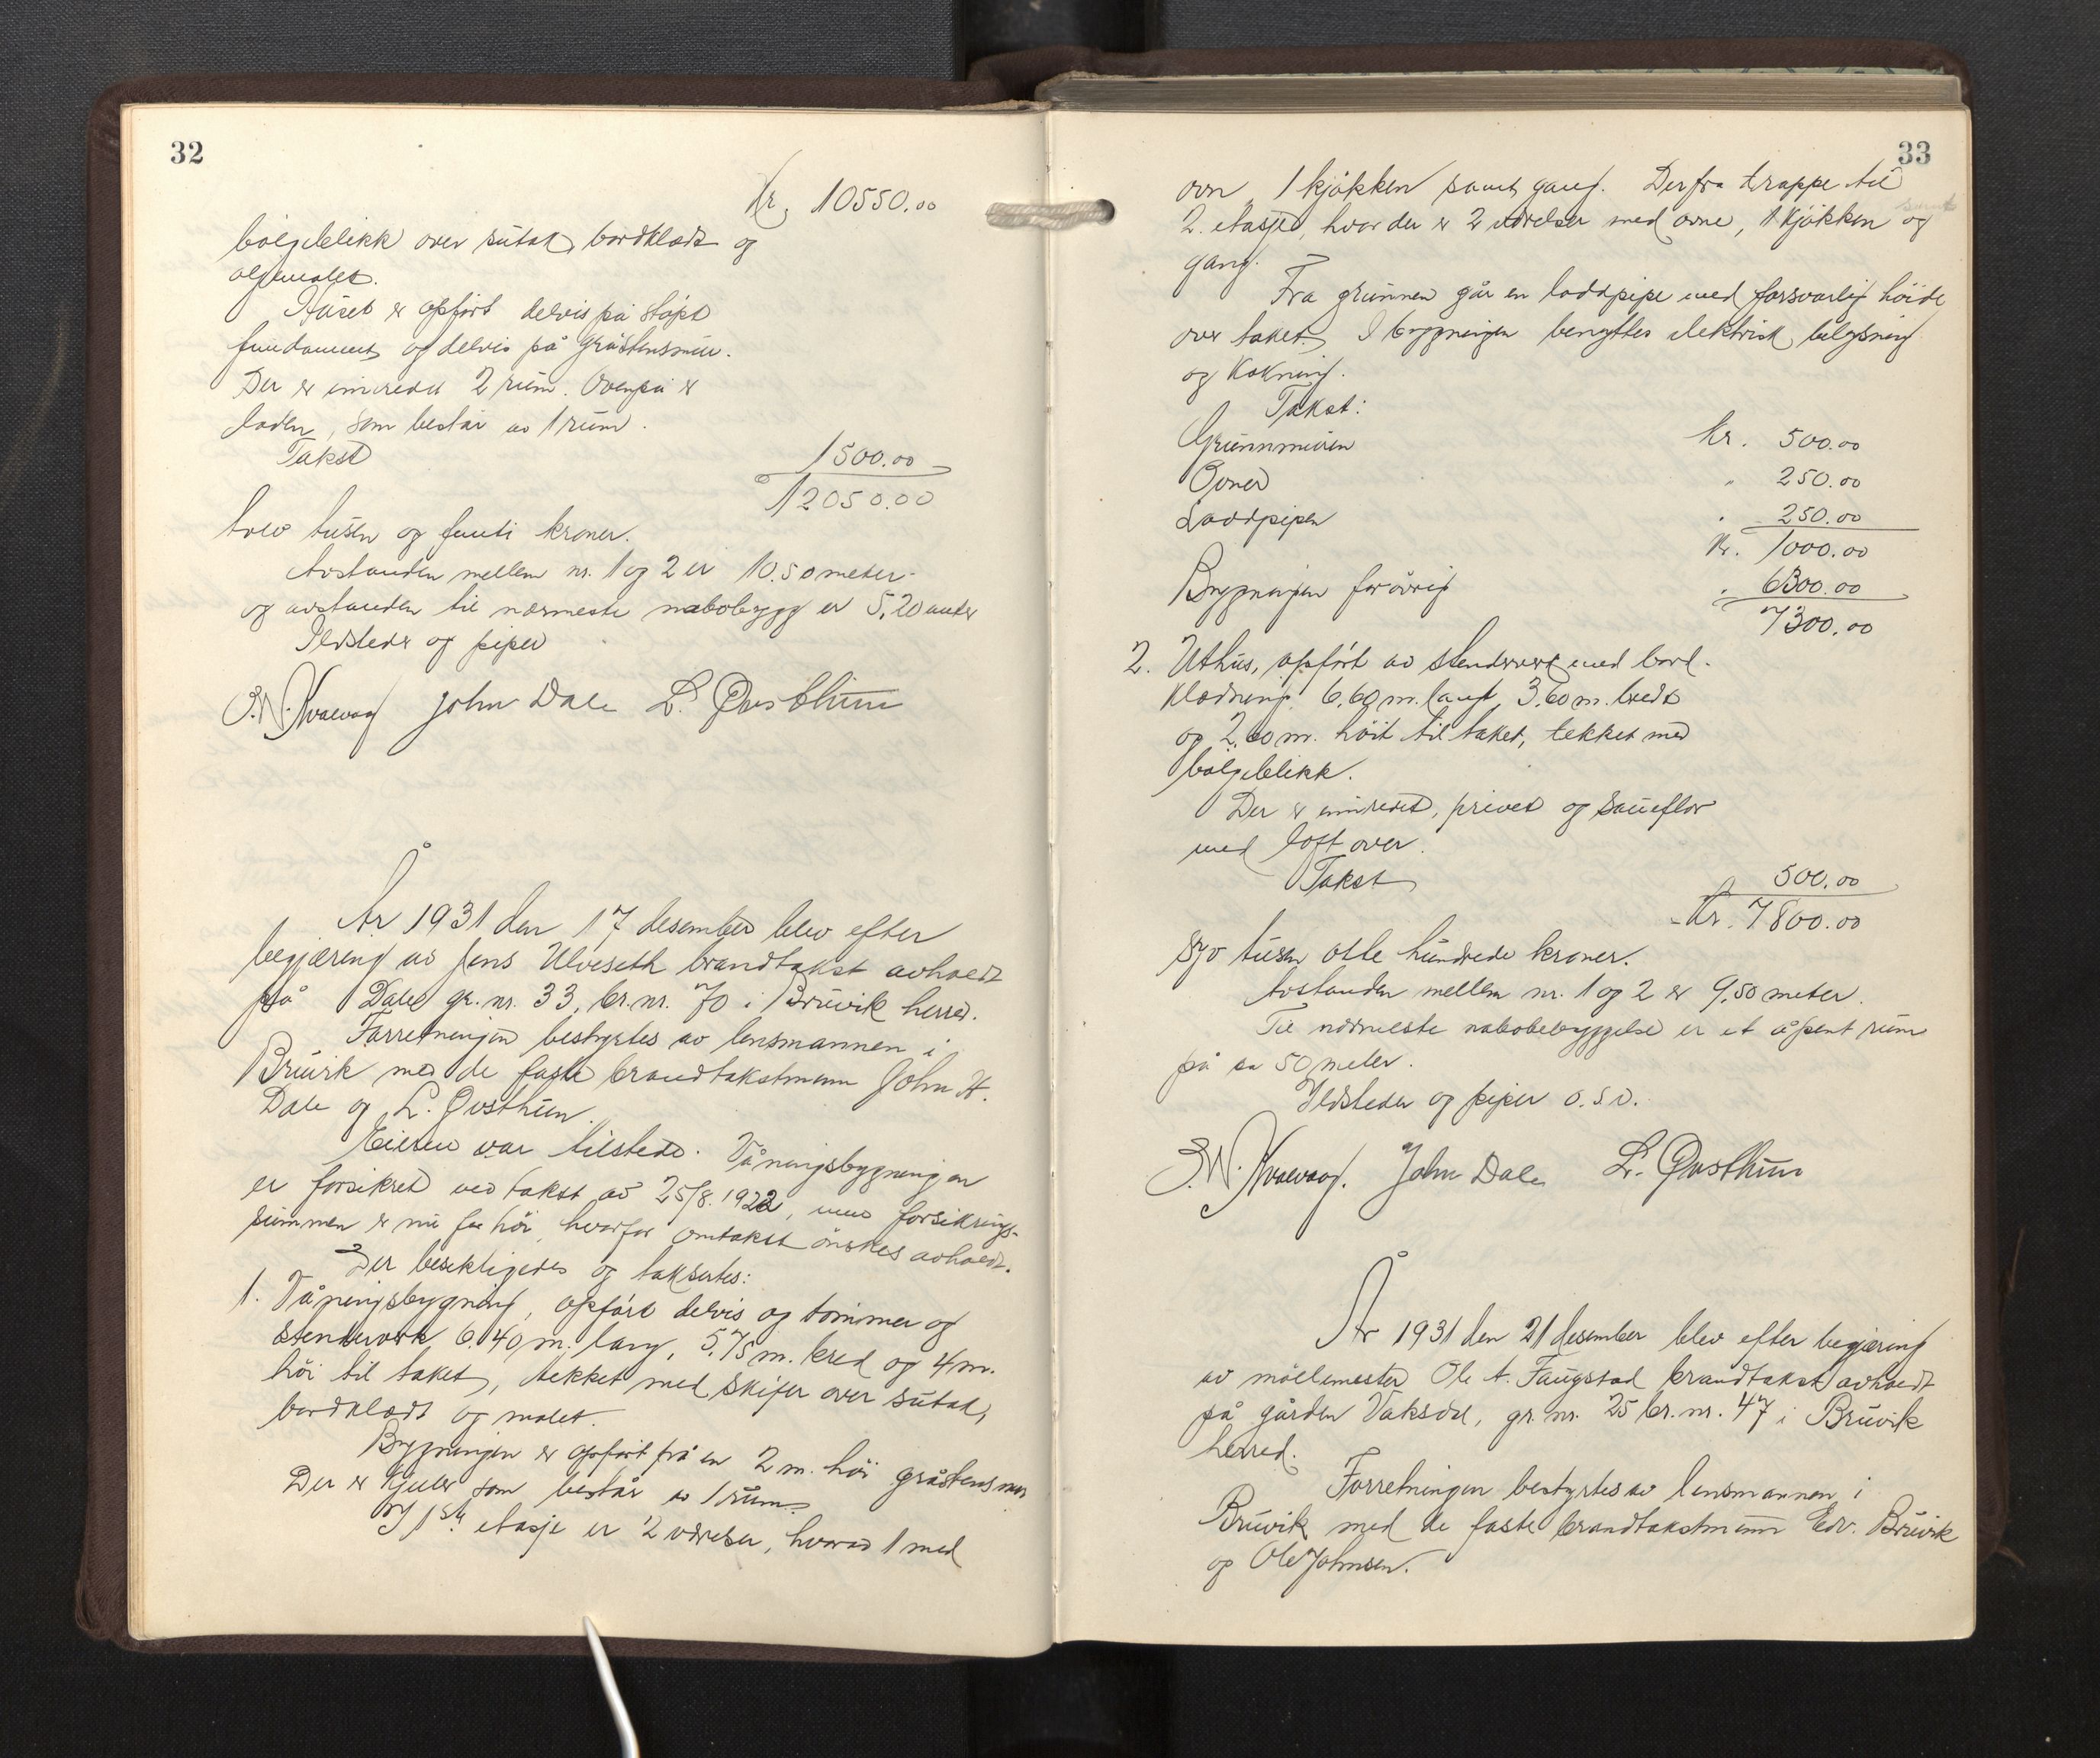 32
Kr. 10550.00
bølgeblikk over sutak, bordklædt og
oljemalet.
Huset er opført delvis på støpt
fundament og delvis på gråstensmur.
Der er innredet 2 rum. Ovenpå er
laden, som består av 1 rum.
Takst 1500.00
12050.00
tolv tusen og femti kroner.
Avstanden mellem nr. 1 og 2 er 10.50 meter
og avstanden til nærmeste nabobygg er 5,20 meter
Ildsteder og piper
John Dale L. Øvsthun
År 1931 den 17 desember blev efter
begjæring av Jens Ulveseth brandtakst avholdt
på Dale gr. nr. 33, br. nr. 70 i Bruvik herred.
Forretningen bestyrtes av lensmannen i
Bruvik med de faste brandtakstmenn John H.
Dale og L. Øvsthun.
Eieren var tilstede. Våningsbygningen
er forsikret ved takst av 25/8. 1922, men forsikrings-
summen er nu for høi, hvorfor omtakst ønskes avholdt.
Der besiktigedes og taksertes:
1. Våningsbygning, opført delvis og tømmer og
stenderverk 6.40 m. lang, 5,75 m. bred og 4 m.
høi til taket, tekket med skifer over sutak,
bordklædt og malet.
Bygningen er opført på en 2 m. høi gråstensmur
Der er kjeller som består av 1 rum.
I 1ste etasje er 2 værelser, hvorav 1 med
33
ovn, 1 kjøkken samt gang. Derfra trappe til
2. etasje, hvor der er 2 værelser med ovne, 1 kjøkken og
gang.
Fra grunnen går en loddpipe med forsvarlig høide
over taket. I bygningen benyttes elektrisk belysning
og kokning.
Takst:
Grunnmuren kr. 500.00
Ovner " 250.00
Loddpipen " 250.00
Kr. 1000.00
Bygningen forøvrig " 6300.00
7300.00
2. Uthus, opført av stenderverk med bord-
klædning. 6,60 m. langt, 3,60 m. bredt
og 2,60 m. høit til taket, tekket med
bølgeblikk.
Der er innredet, privet og saueflor
med loft over.
Takst 500.00
Kr. 7800.00
syv tusen otte hundrede kroner.
Avstanden mellem nr. 1 og 2 er 9,50 meter.
Til nærmeste nabobebyggelse er et åpent rum
på ca 50 meter.
Ildsteder og piper o.s.v.
John Dale L. Øvsthun
År 1931 den 21 desember blev efter begjæring
av møllemester Ole A. Faugstad brandtakst avholdt
på gården Vaksdal, gr. nr. 25 br. nr. 47 i Bruvik
herred.
Forretningen bestyrtes av lensmannen i
Bruvik med de faste brandtakstmenn Edv. Bruvik
og Ole Johnsen.